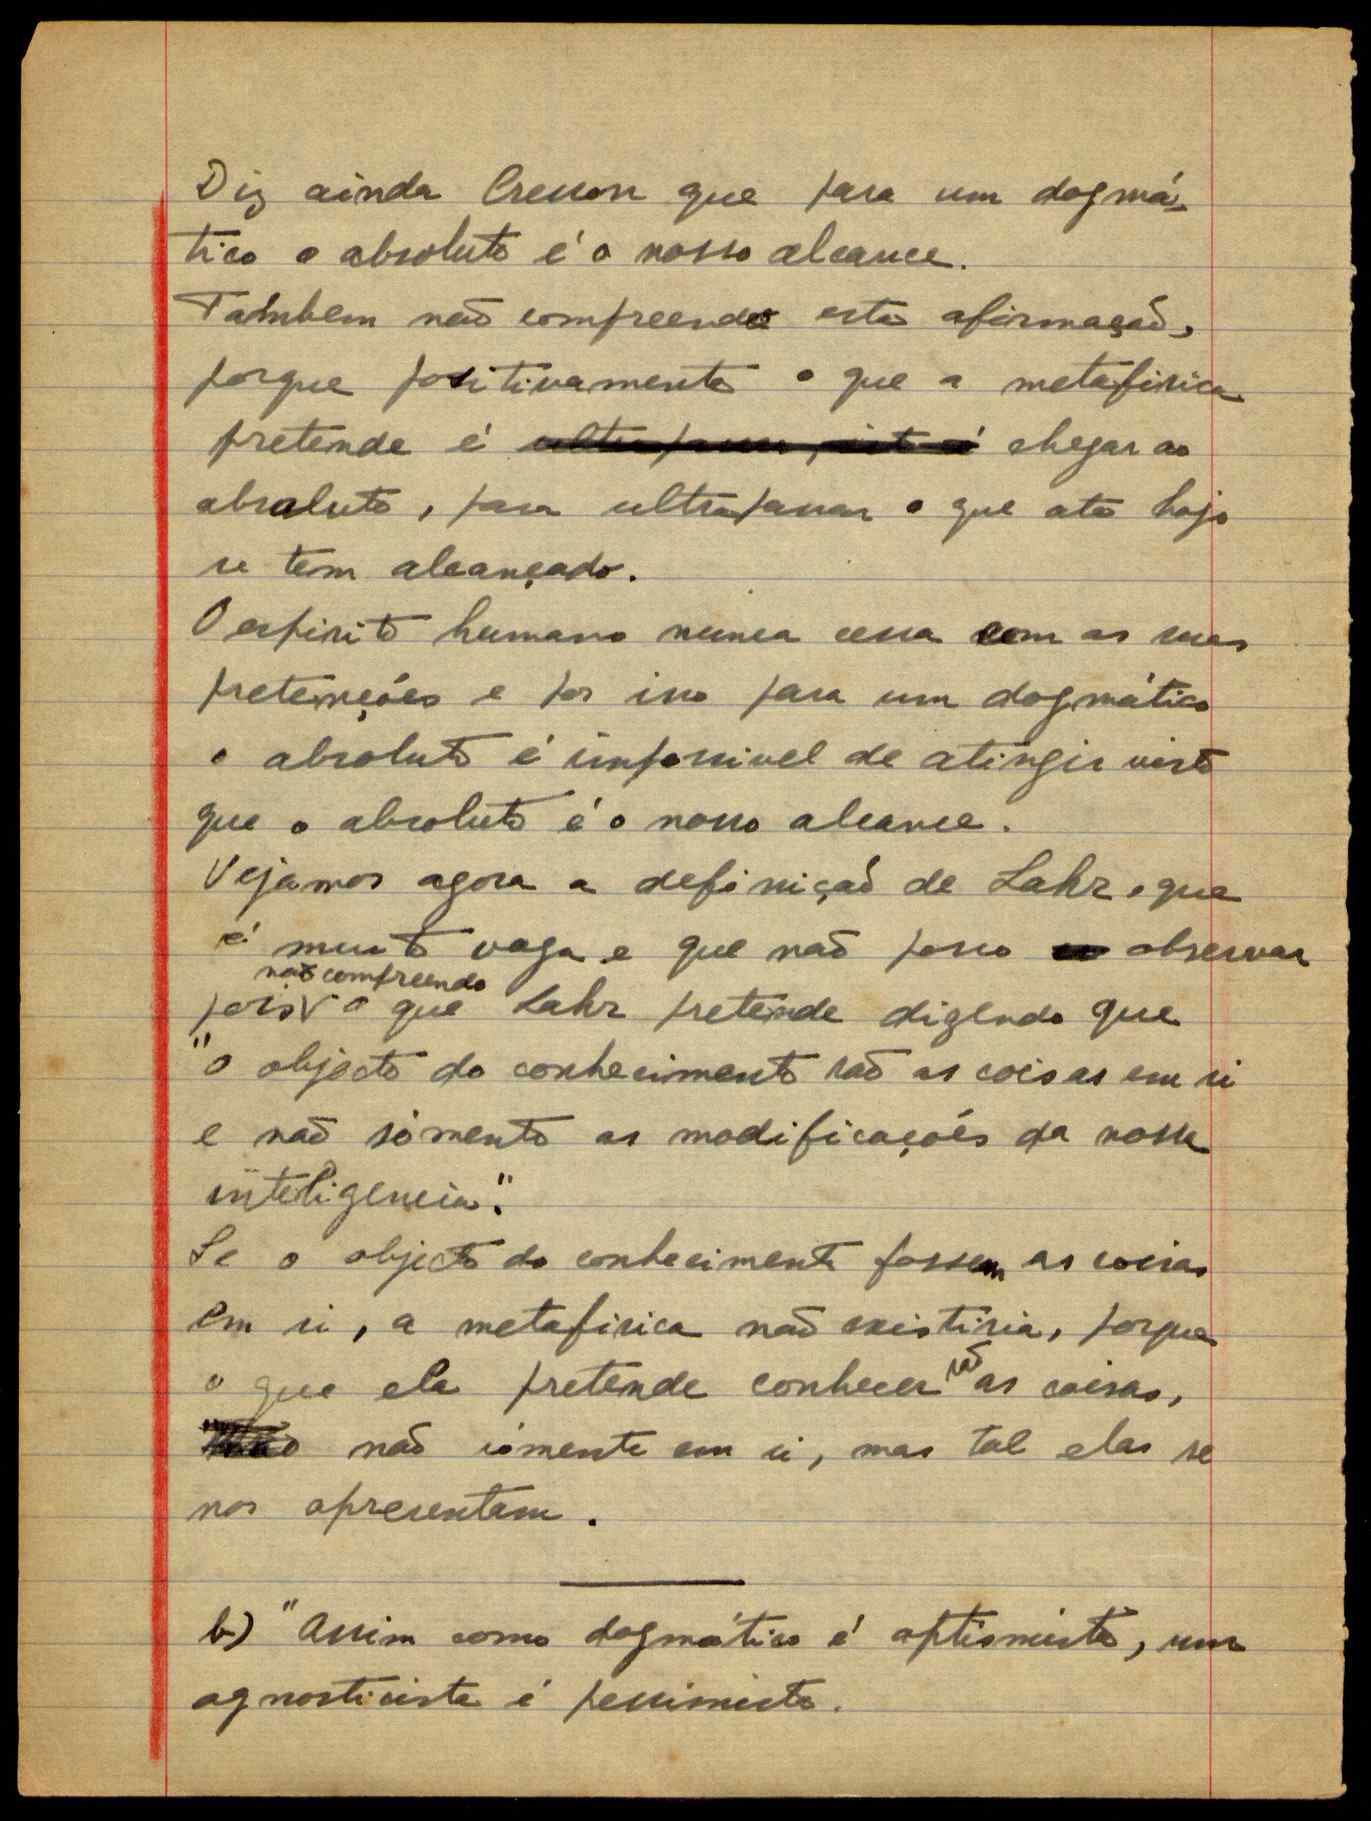 Diz ainda Cresson que para um dogmá-
tico o absoluto é o nosso alcance.
Tambem não compreendo esta afirmação,
porque positivamente o que a metafisica
pretende é ultrapassar, isto é chegar ao
absoluto, para ultrapassar o que até hoje
se tem alcançado.
O espirito humano nunca cessa com as suas
pretenções e por isso para um dogmático
o absoluto é impossivel de atingir visto
que o absoluto é o nosso alcance.
Vejamos agora a definição de Lahr, que
é muito vaga e que não posso observar
não compreendo
pois o que Lahr pretende dizendo que
"o objecto do conhecimento são as coisas em si
e não sómente as modificações da nossa
inteligencia".
Se o objecto do conhecimento fossem as coisas
em si, a metafisica não existiria, porque
o que ela pretende conhecer são as coisas,
não sómente em si, mas tal elas se
nos apresentam.
b) "Assim como dogmático é optimista, um
agnosticista é pessimista.